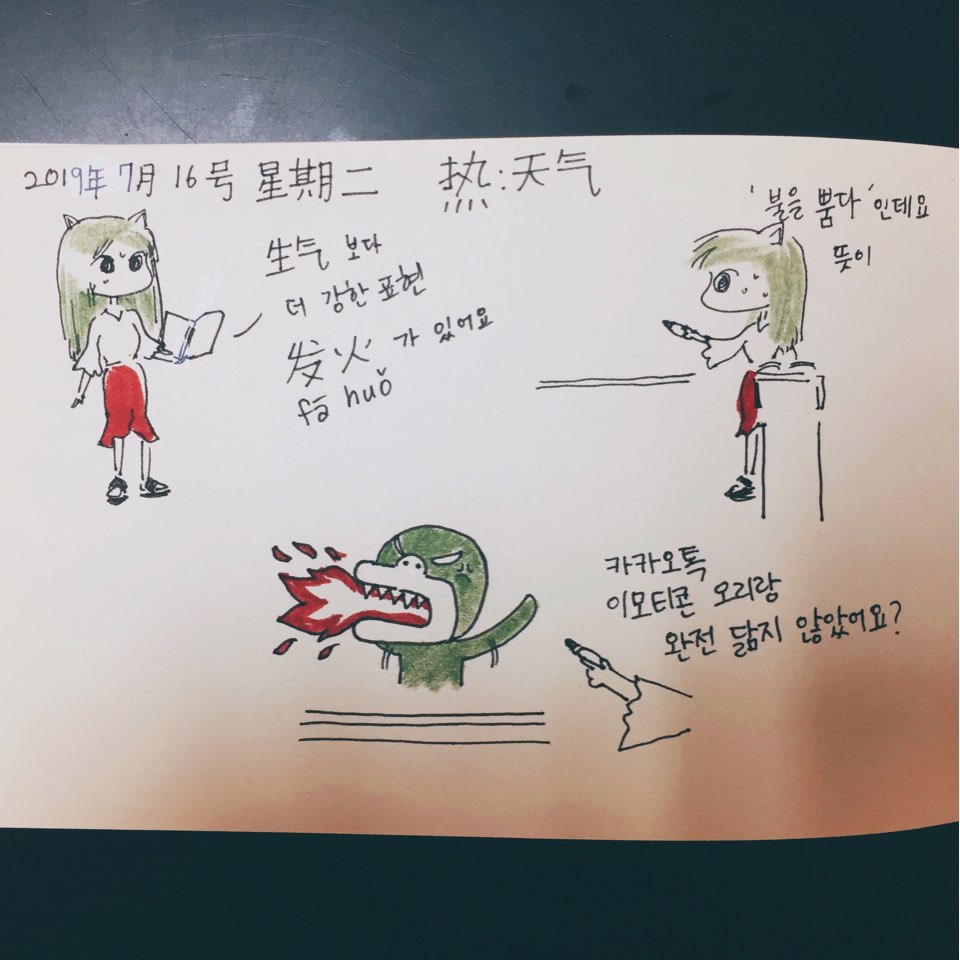 2019年 7月 16号 星期二 热:天气
生气 보다
더 강한 표현
发火 가 있어요
fā huǒ
'불을 뿜다'인데요
뜻이
카카오톡
이모티콘 오리랑
완전 닮지 않았어요?